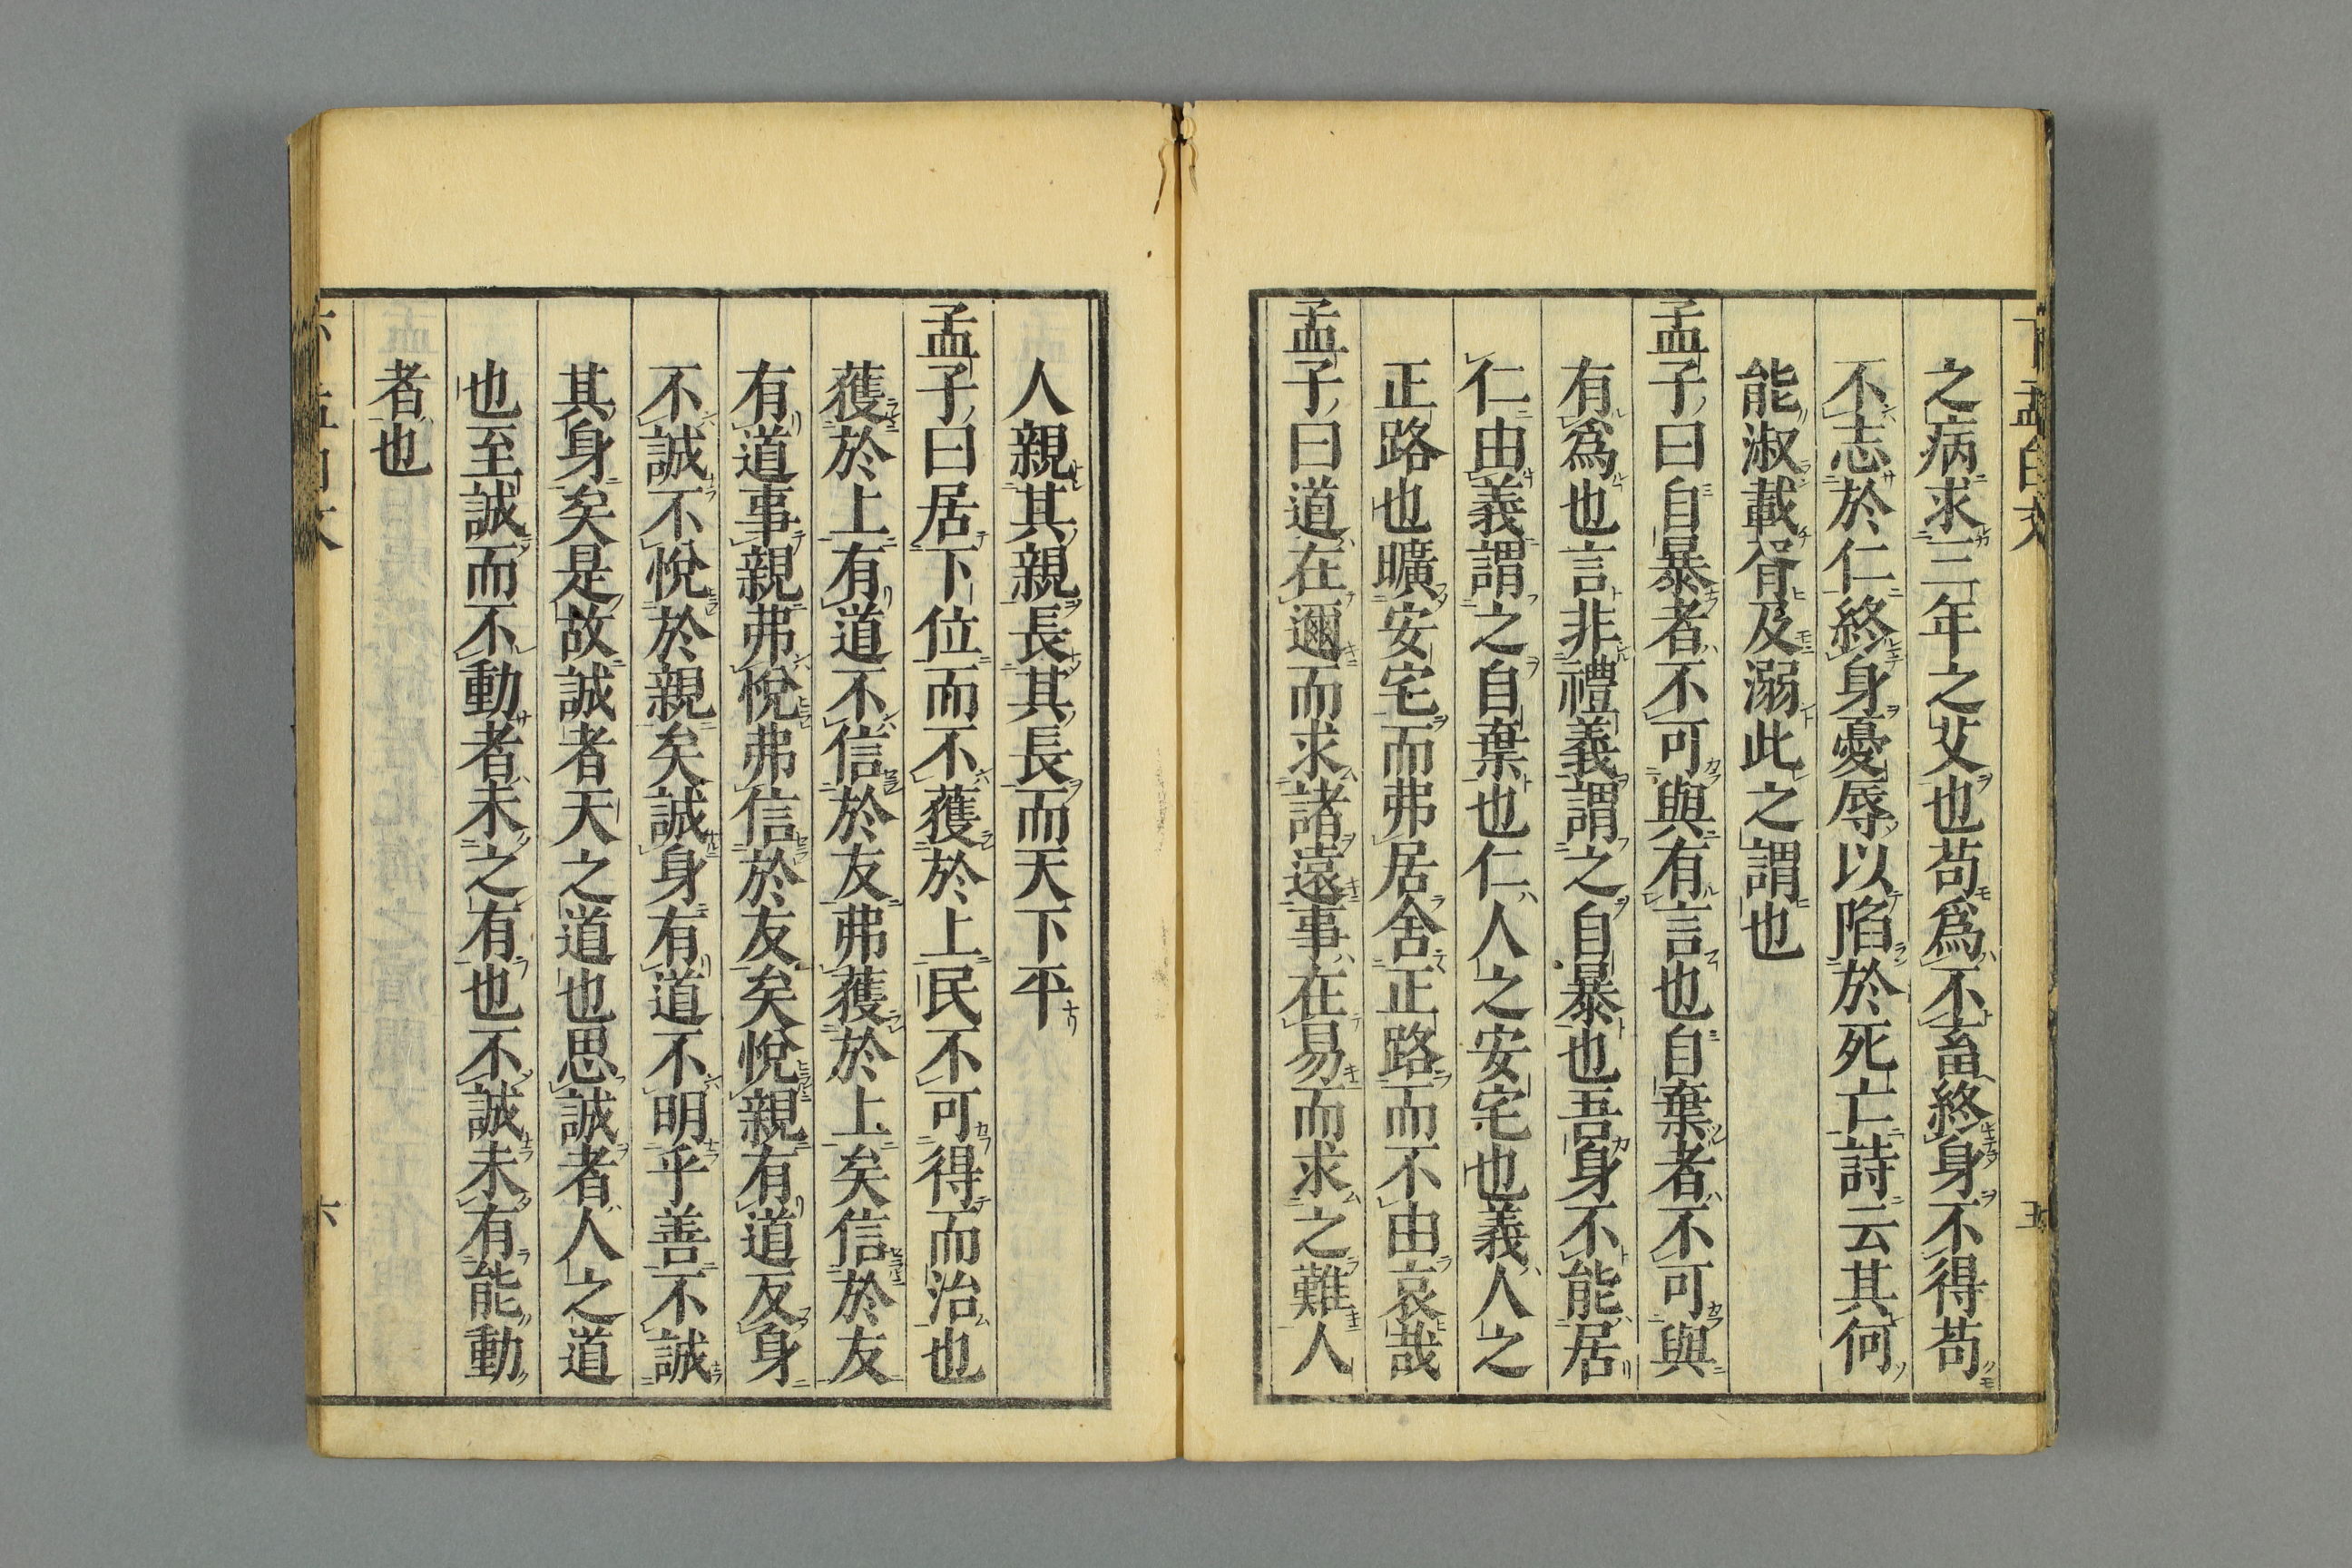 之病求三年之艾也苟爲不畜終身不得苟
不志於仁終身憂辱以陷於死亡詩云其何
能淑載胥及溺此之謂也
孟子曰自暴者不可與有言也自棄者不可與
有爲也言非禮義謂之自暴也吾身不能居
仁由義謂之自棄也仁人之安宅也義人之
正路也曠安宅而弗居舍正路而不由哀哉
孟子曰道在邇而求諸遠事在易而求之難人
人親其親長其長而天下平
孟子曰居下位而不獲於上民不可得而治也
獲於上有道不信於友弗獲於上矣信於友
有道事親弗悅弗信於友矣悅親有道反身
不誠不悅於親矣誠身有道不明乎善不誠
其身矣是故誠者天之道也思誠者人之道
也至誠而不動者未之有也不誠未有能動
者也
六